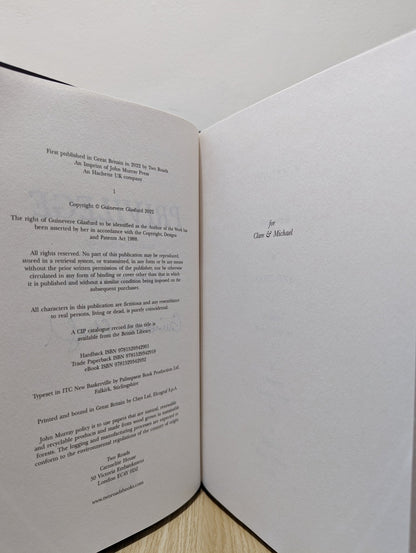 First published in Great Britain in 2022 by Two Roads
An Imprint of John Murray Press
An Hachette UK company
1
Copyright © Guinevere Glasfurd 2022
The right of Guinevere Glasfurd to be identified as the Author of the Work has
been asserted by her in accordance with the Copyright, Designs
and Patents Act 1988.
All rights reserved. No part of this publication may be reproduced,
stored in a retrieval system, or transmitted, in any form or by any means
without the prior written permission of the publisher, nor be otherwise
circulated in any form of binding or cover other than that in which
it is published and without a similar condition being imposed on the
subsequent purchaser.
All characters in this publication are fictitious and any resemblance
to real persons, living or dead, is purely coincidental.
A CIP catalogue record for this title is
available from the British Library
Hardback ISBN
Trade Paperback ISBN
eBook ISBN
Typeset in ITC New Baskerville by Palimpsest Book Production Ltd,
Falkirk, Stirlingshire
Printed and bound in Great Britain by Clays Ltd, Elcograf S.p.A.
John Murray policy is to use papers that are natural, renewable
and recyclable products and made from wood grown in sustainable
forests. The logging and manufacturing processes are expected to
conform to the environmental regulations of the country of origin.
Two Roads
Carmelite House
50 Victoria Embankment
London EC4Y 0DZ
www.tworoadsbooks.com
for
Clara & Michael